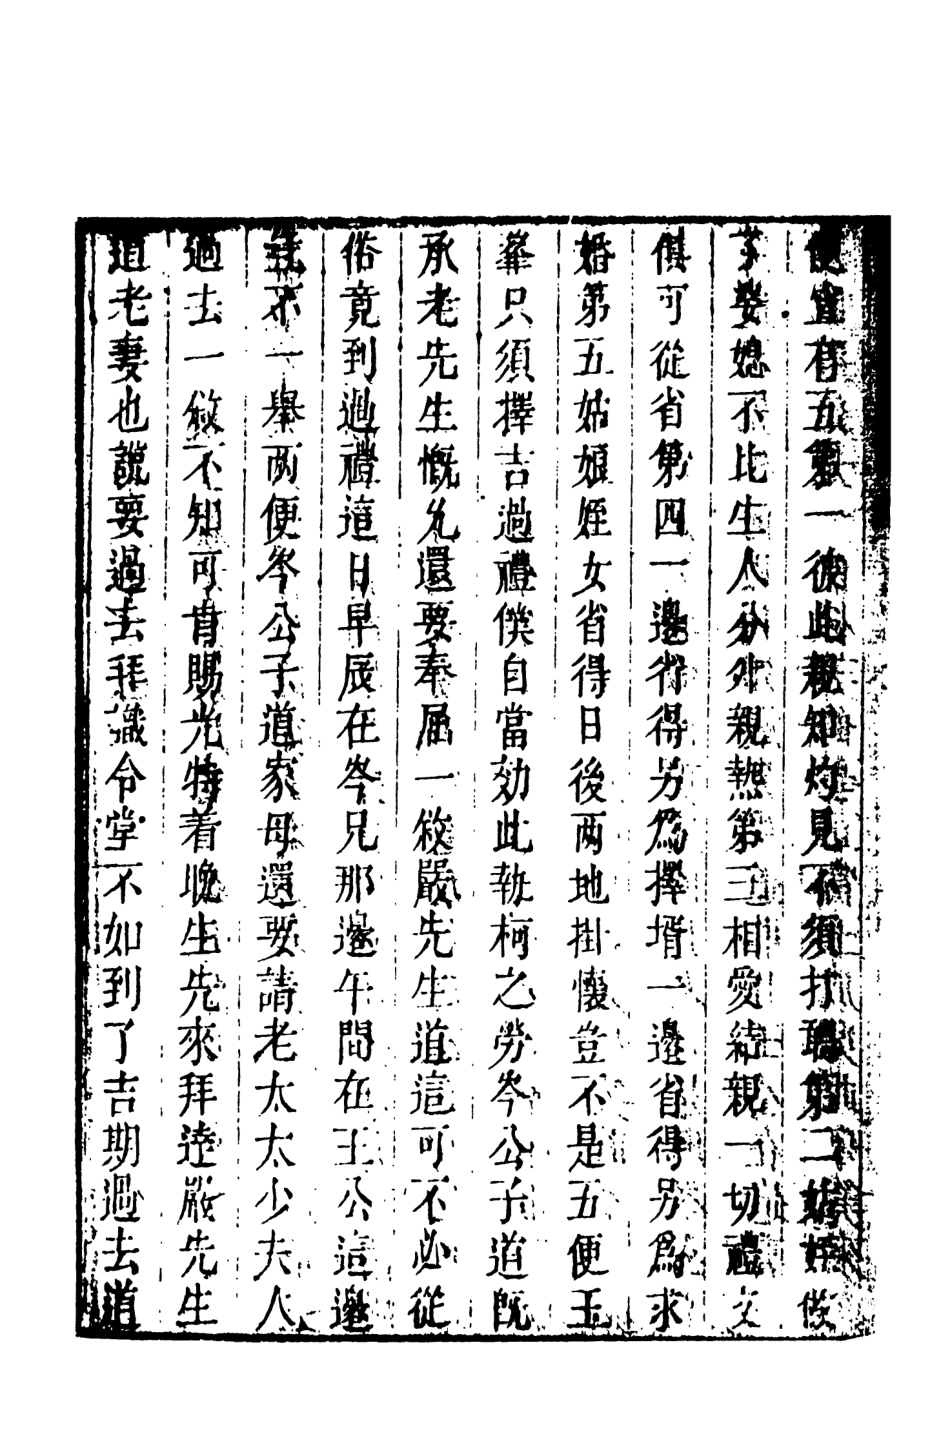 便宜有五第一彼此親知灼見不須打聽第二姑姪做
了婆媳不比生人分外親熱第三相愛結親一切禮文
俱可從省第四一邊省得另爲擇壻一邊省得另爲求
婚第五姑娘姪女省得日後兩地掛懷豈不是五便玉
峯只須擇吉過禮僕自當効此執柯之勞岑公子道既
承老先生慨允還要奉屈一敘嚴先生道這可不必從
俗竟到過禮這日早晨在岑兄那邊午間在王公這邊
豈不一舉兩便岑公子道家母還要請老太太少夫人
過去一敘不知可肯賜光特着晚生先來拜達嚴先生
道老妻也說要過去拜識令堂不如到了吉期過去道